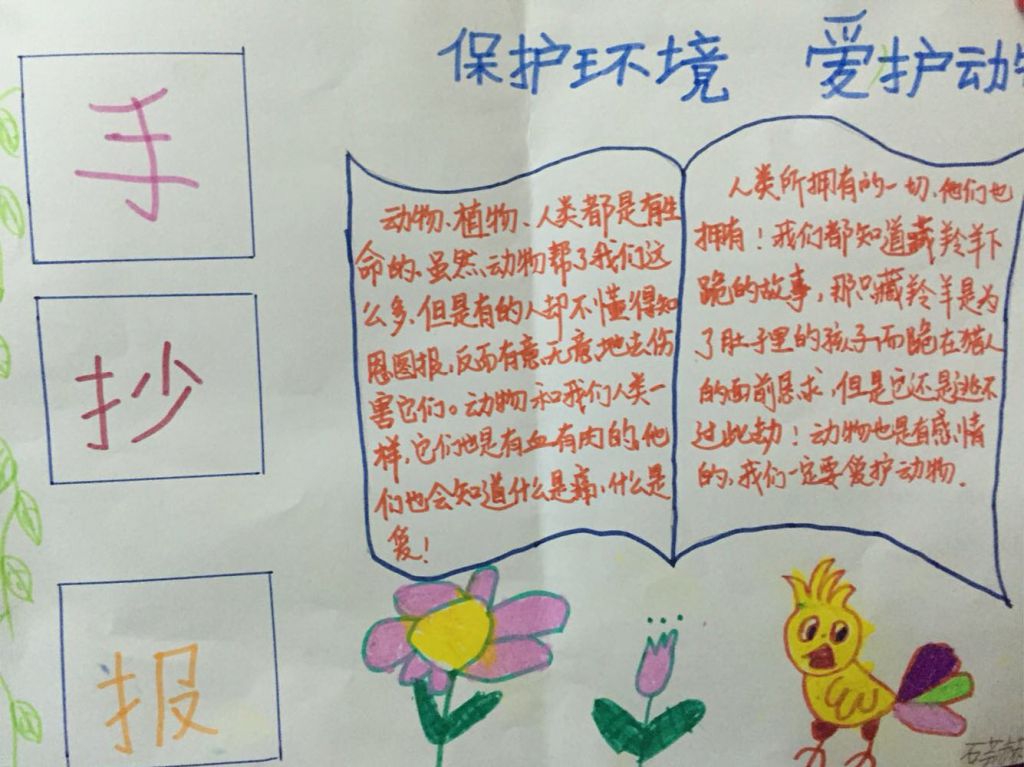 保护环境 爱护动物
手
抄
报
动物、植物、人类都是有生
命的。虽然动物帮了我们这
么多,但是有的人却不懂得知
恩图报,反而有意无意地去伤
害它们。动物和我们人类一
样,它们也是有血有肉的,他
们也会知道什么是痛,什么是
爱!
人类所拥有的一切,他们也
拥有!我们都知道藏羚羊下
跪的故事,那只藏羚羊是为
了肚子里的孩子而跪在猎人
的面前恳求,但是它还是逃不
过此劫!动物也是有感情
的,我们一定要爱护动物.